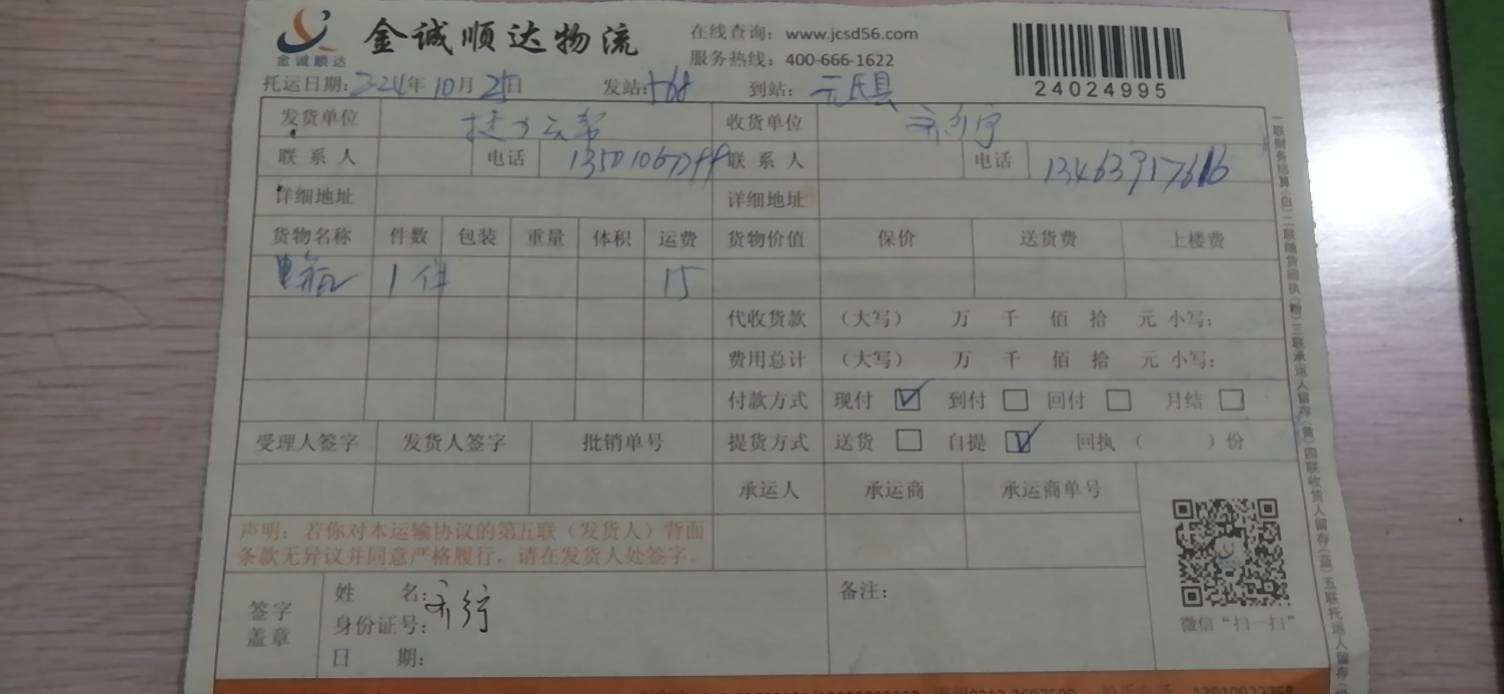 金诚顺达
金诚顺达物流
在线查询: www.jcsd56.com
服务热线: 400-666-1622
24024995
托运日期: 年10月25日 发站: 到站: 元氏县
发货单位 收货单位
联系人 电话 联系人 电话
详细地址 详细地址
货物名称 件数 包装 重量 体积 运费 货物价值 保价 送货费 上楼费
电瓶 1件 15
代收货款 (大写) 万 千 佰 拾 元 小写:
费用总计 (大写) 万 千 佰 拾 元 小写:
付款方式 现付 到付 回付 月结
受理人签字 发货人签字 批销单号 提货方式 送货 自提 回执 ( )份
承运人 承运商 承运商单号
声明: 若你对本运输协议的第五联(发货人)背面
条款无异议并同意严格履行,请在发货人处签字。
签字
盖章
姓 名:
身份证号:
日 期:
备注:
微信“扫一扫”
一联财务结算(白)二联随货回执(粉)三联承运人留存(黄)四联收货人留存(蓝)五联托运人留存